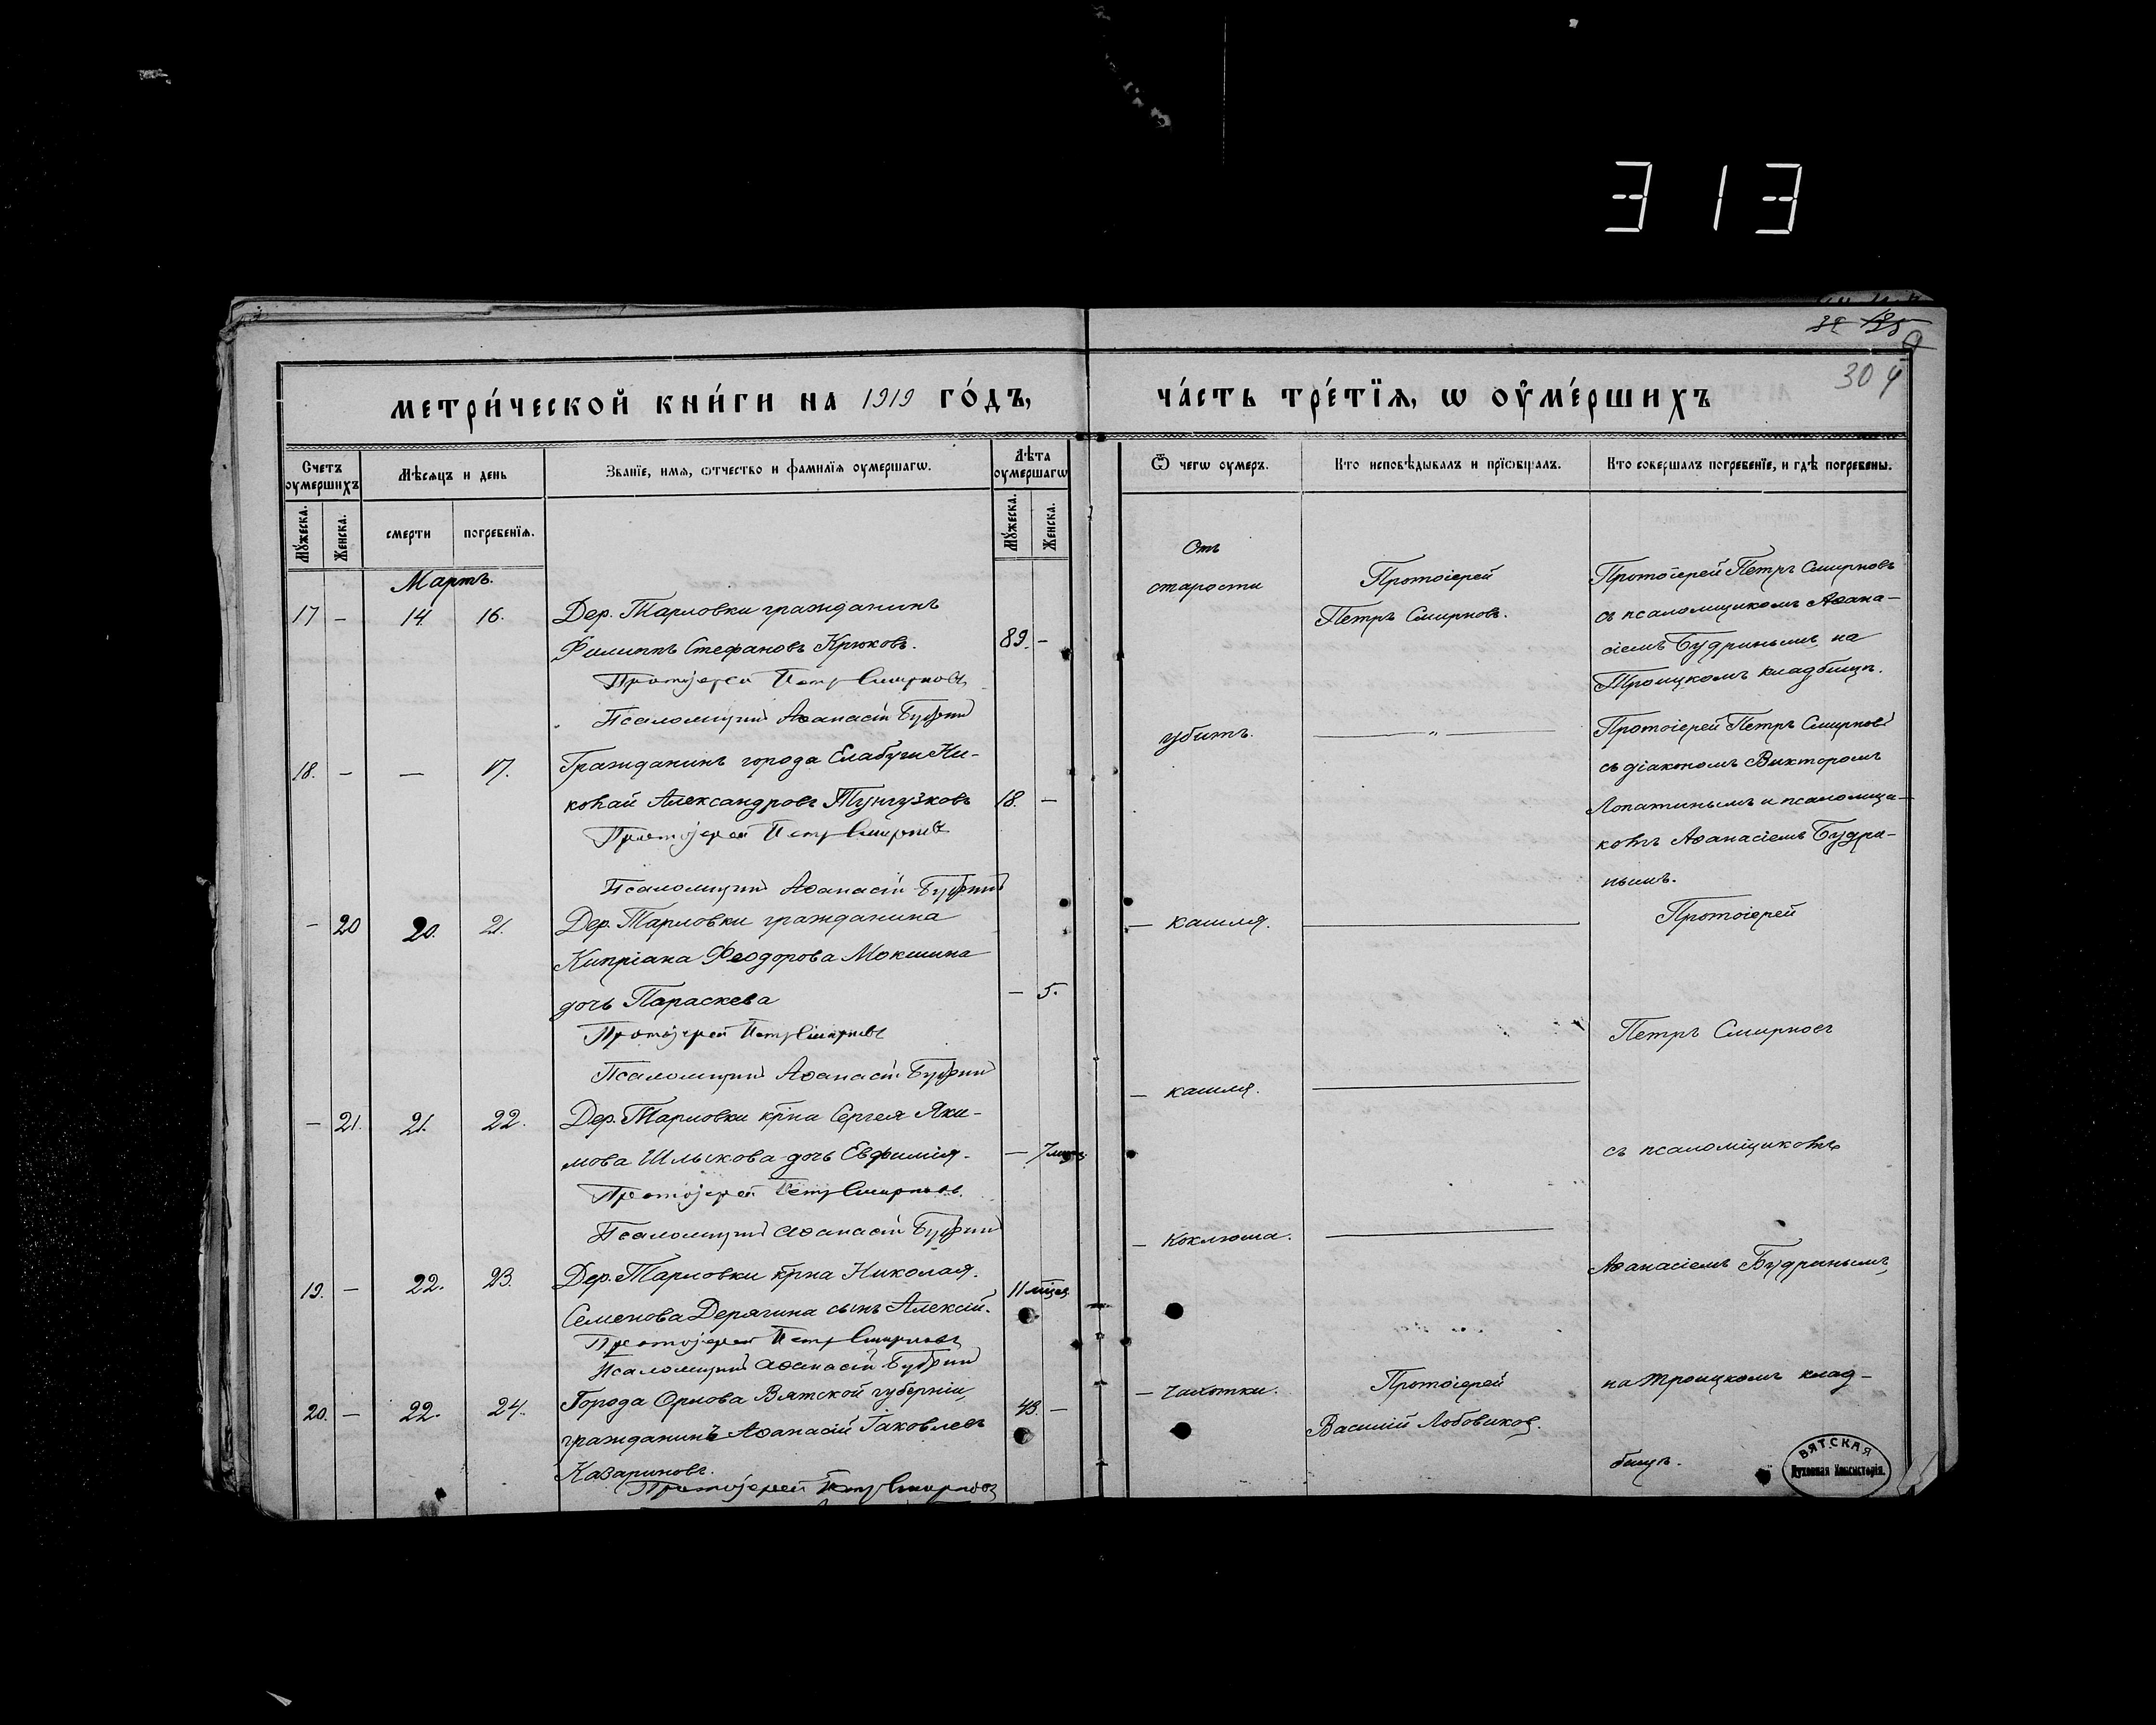 313
30
метри́ческой кни́ги на 1919 го́дъ,
ча́сть тре́тїѧ, ѡ оу҆ме́ршихъ
Счетъ оумершихъ
Мѣсѧцъ и день
Званїе, имѧ, ѡтчество и фамилїѧ оумершагѡ.
Лѣта оумершагѡ
Ѿ чегѡ оумеръ.
Кто исповѣдывалъ и прїѡбщалъ.
Кто совершалъ погребенїе, и гдѣ погребены.
Мꙋжеска.
Женска.
смерти
погребенїѧ.
Мꙋжеска.
Женска.
Мартъ.
17 - 14. 16.
Дер. Тарловки гражданинъ
Филиппъ Стефановъ Крюковъ.
89. -
Протоjерей Петръ Смирновъ
Псаломщикъ Аѳанасій Будринъ
Отъ
старости
Протоіерей
Петръ Смирновъ.
Протоіерей Петръ Смирновъ
съ псаломщикомъ Аѳана-
сіемъ Будринымъ на
Троицкомъ кладбищѣ.
18. - - 17.
Гражданинъ города Елабуги Ни-
колай Александровъ Тунгузковъ
18. -
Протоjерей Петръ Смирновъ
Псаломщикъ Аѳанасій Будринъ
убитъ.
— „ —
Протоіерей Петръ Смирновъ
съ діакономъ Викторомъ
Лопатинымъ и псаломщи-
комъ Аѳанасіемъ Будри-
нымъ.
- 20 20. 21.
Дер. Тарловки гражданина
Кипріана Ѳеодорова Мокшина
дочь Параскева
- 5.
Протоjерей Петръ Смирновъ
Псаломщикъ Аѳанасій Будринъ
- кашля.
Протоіерей
Петръ Смирновъ
- 21. 21. 22.
Дер. Тарловки кр̄на Сергея Яки-
мова Шлыкова дочь Евфимія.
- 7 мцев
Протоjерей Петръ Смирновъ.
Псаломщикъ Аѳанасій Будринъ
- кашля.
съ псаломщикомъ
19. - 22. 23.
Дер. Тарловки кр̄на Николая
Семенова Дерягина сынъ Алексій.
11 мцев
Протоjерей Петръ Смирновъ
Псаломщикъ Аѳанасій Будринъ
- Коклюша.
Аѳанасіемъ Будринымъ
20. - 22. 24.
Города Орлова Вятской губерніи
гражданинъ Аѳанасій Іаковлевъ
Казариновъ.
43. -
Протоjерей Петръ Смирновъ
- чахотки.
Протоіерей
Василій Лобовиков.
на Троицкомъ клад-
бищѣ.
ВЯТСКАЯ
Духовная Консисторія.